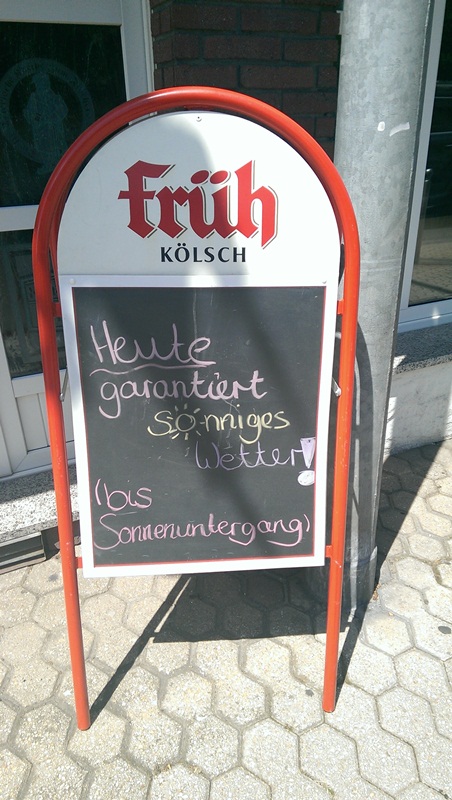 Früh
KÖLSCH
Heute
garantiert
sonniges
Wetter!
(bis
Sonnenuntergang)